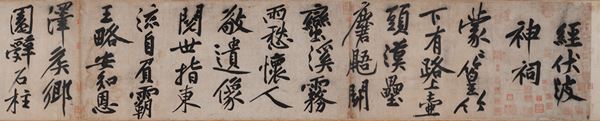 經伏波
神祠
蒙〻篁竹
下有路上壺
頭漢壘
麏鼯鬭
蠻溪霧
雨愁懷人
敬遺像
閱世指東
流自負霸
王略安知恩
澤侯鄉
園辭石柱